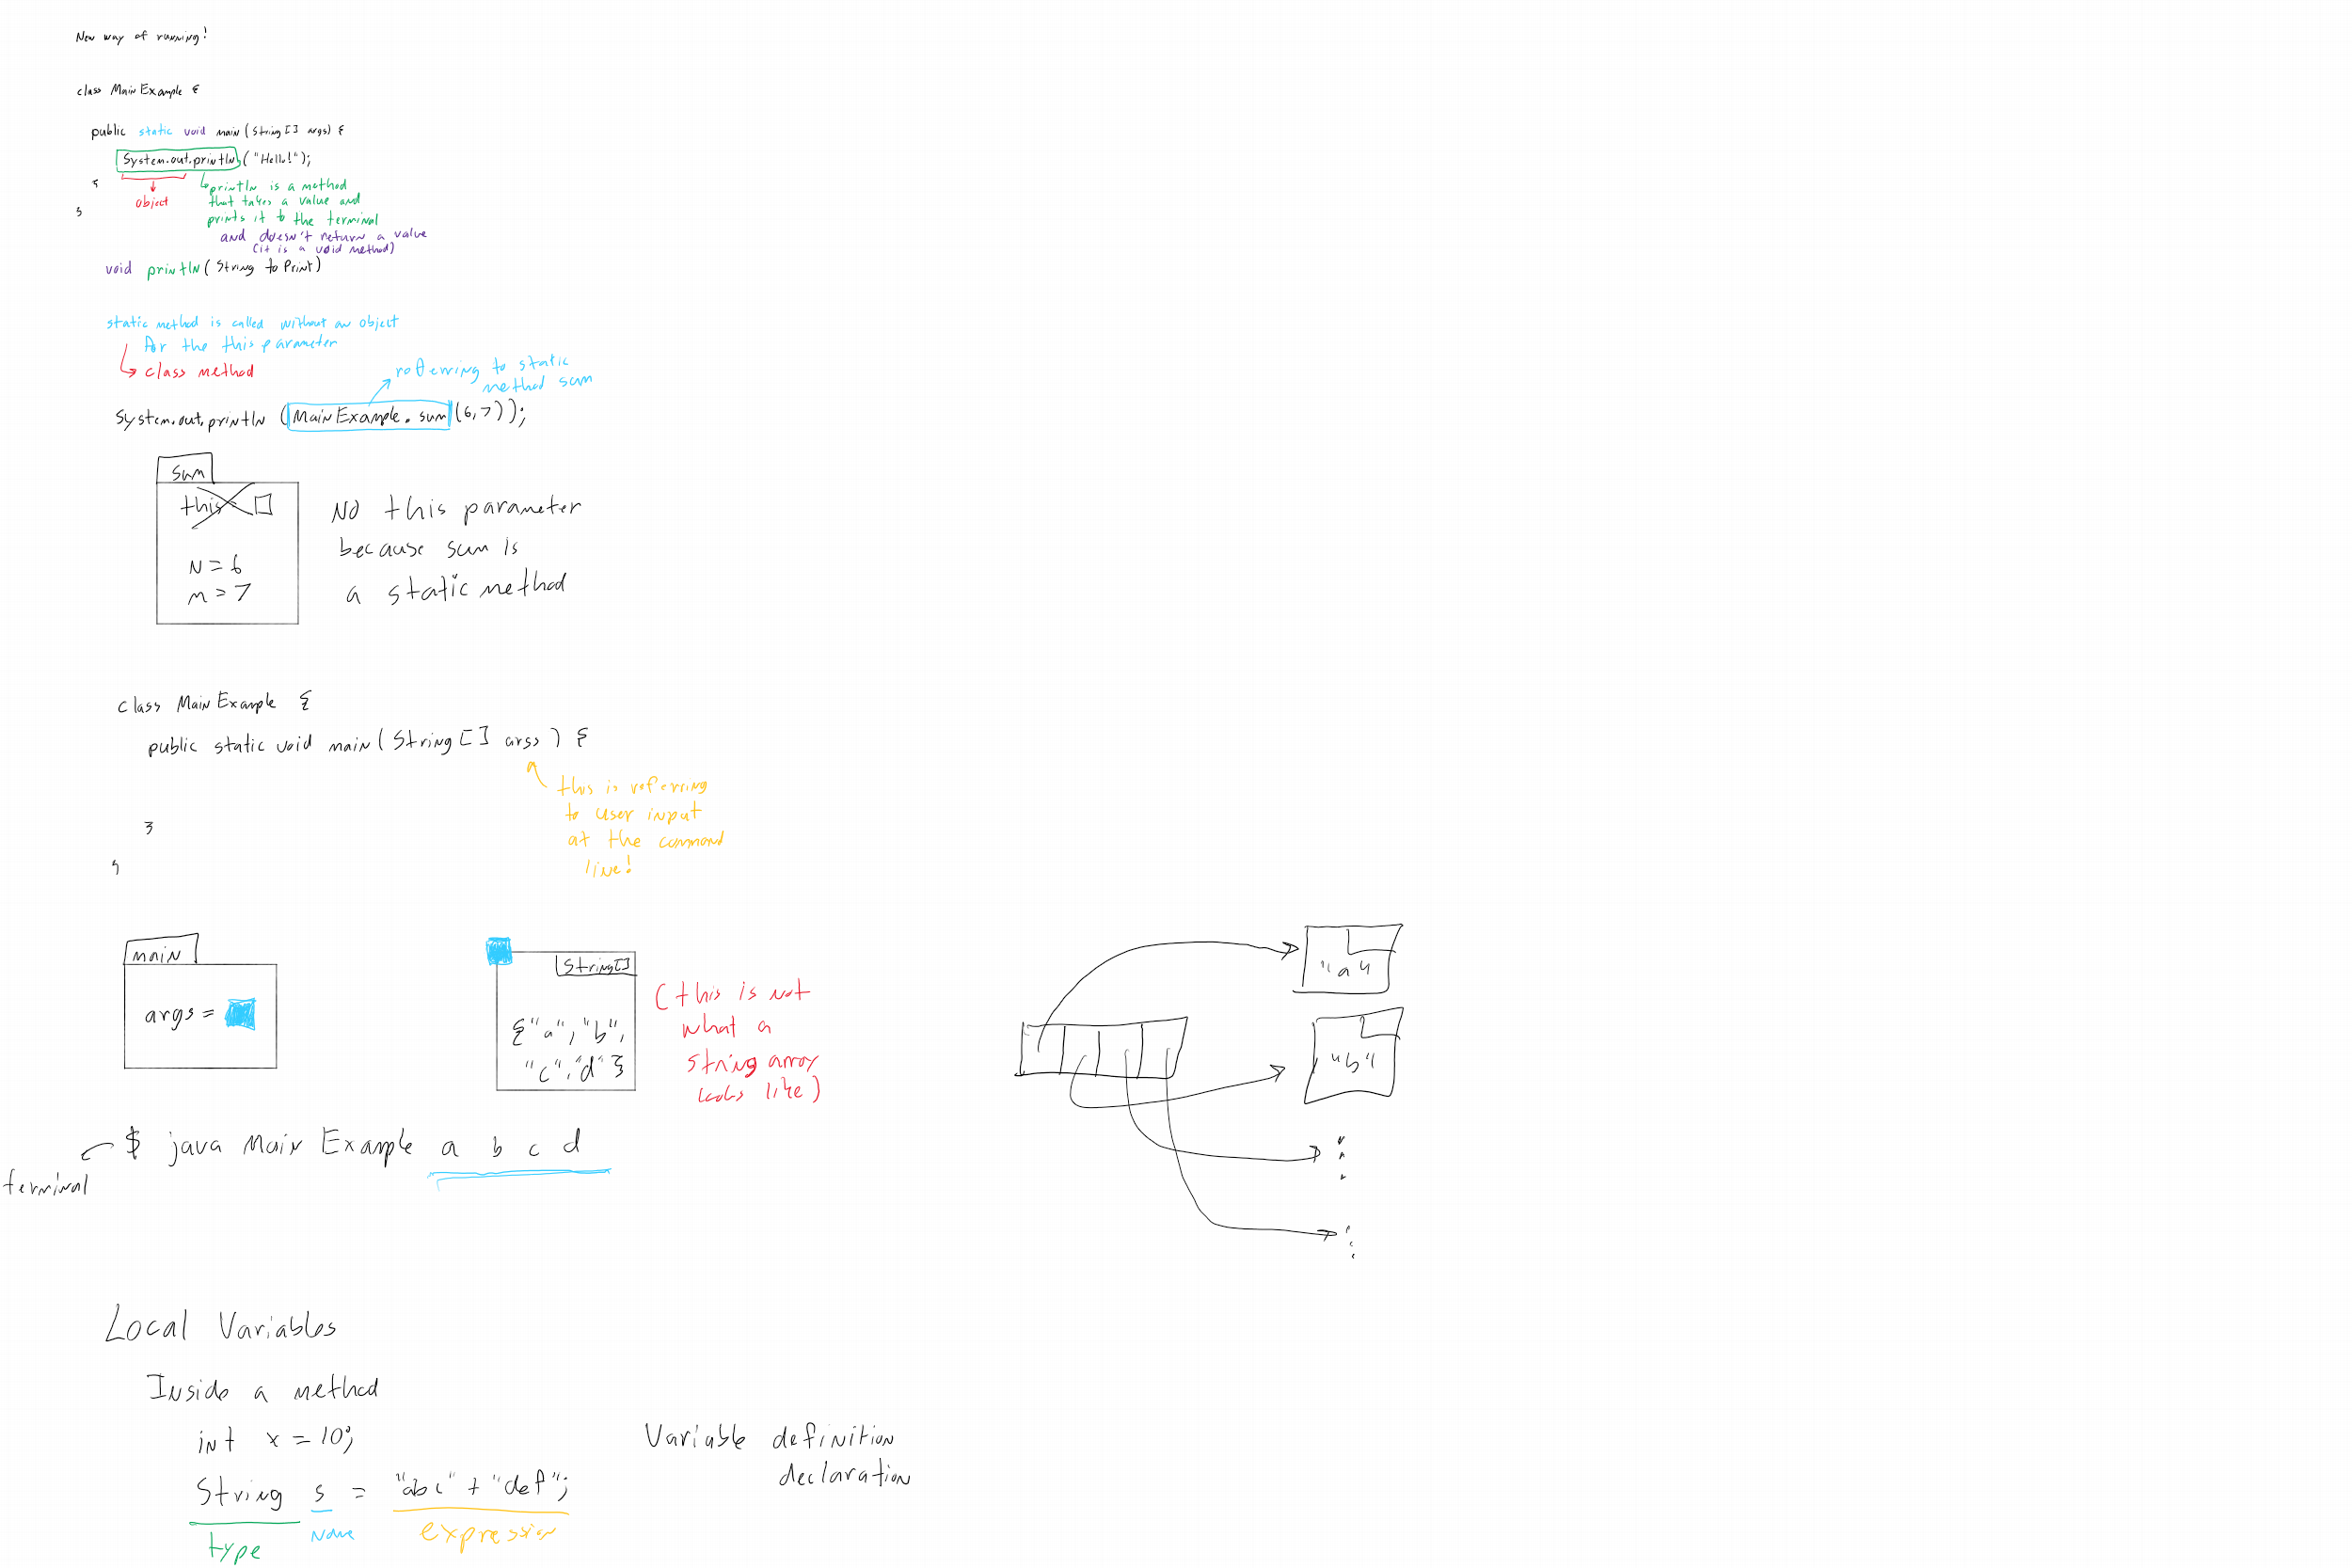 New way of running!
class MainExample {
public static void main (String[] args) {
System.out.println ("Hello!");
}
object
println is a method
that takes a value and
prints it to the terminal
and doesn't return a value
(it is a void method)
}
void println (String toPrint)
static method is called without an object
for the this parameter
class method
referring to static
method sum
System.out.println (MainExample.sum (6,7));
sum
this
N = 6
m = 7
No this parameter
because sum is
a static method
class MainExample {
public static void main (String[] args) {
this is referring
to user input
at the command
line!
}
}
main
args =
String[]
{"a", "b",
"c", "d"}
(this is not
what a
string array
looks like)
"a"
"b"
$ java MainExample a b c d
terminal
Local Variables
Inside a method
int x = 10;
String s = "abc" + "def";
type
name
expression
Variable definition
declaration